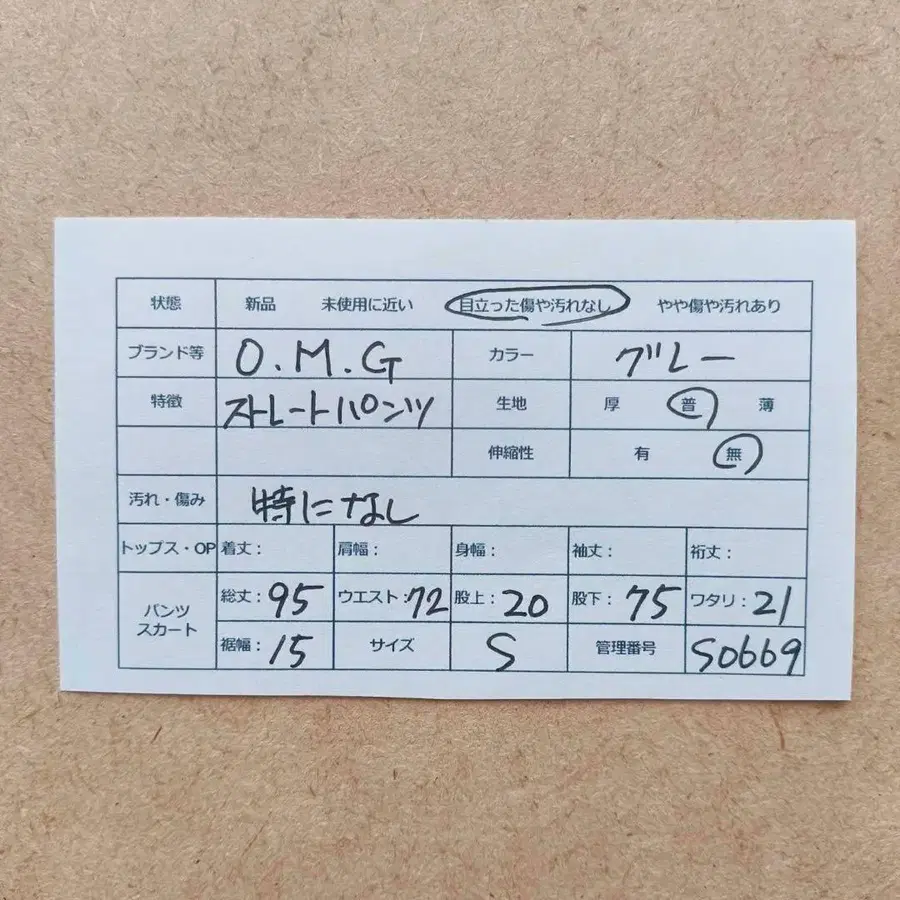 状態 新品 未使用に近い 目立った傷や汚れなし やや傷や汚れあり
ブランド等 O.M.G カラー グレー
特徴 ストレートパンツ 生地 厚 普 薄
伸縮性 有 無
汚れ・傷み 特になし
トップス・OP 着丈: 肩幅: 身幅: 袖丈: 裄丈:
パンツ スカート 総丈:95 ウエスト:72 股上:20 股下:75 ワタリ:21
裾幅:15 サイズ S 管理番号 S0669